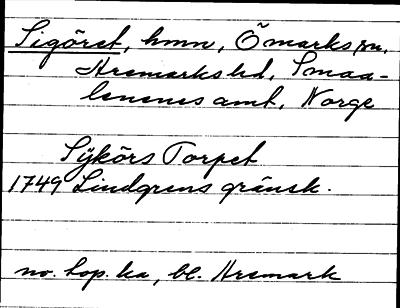 Sigöret, hmn, Ömarks sn,
Aremarks hd, Smaa-
lenenes amt, Norge
Sÿkörs Torpet
1749 Lindgrens gränsk.
no. top. ka, bl. Aremark